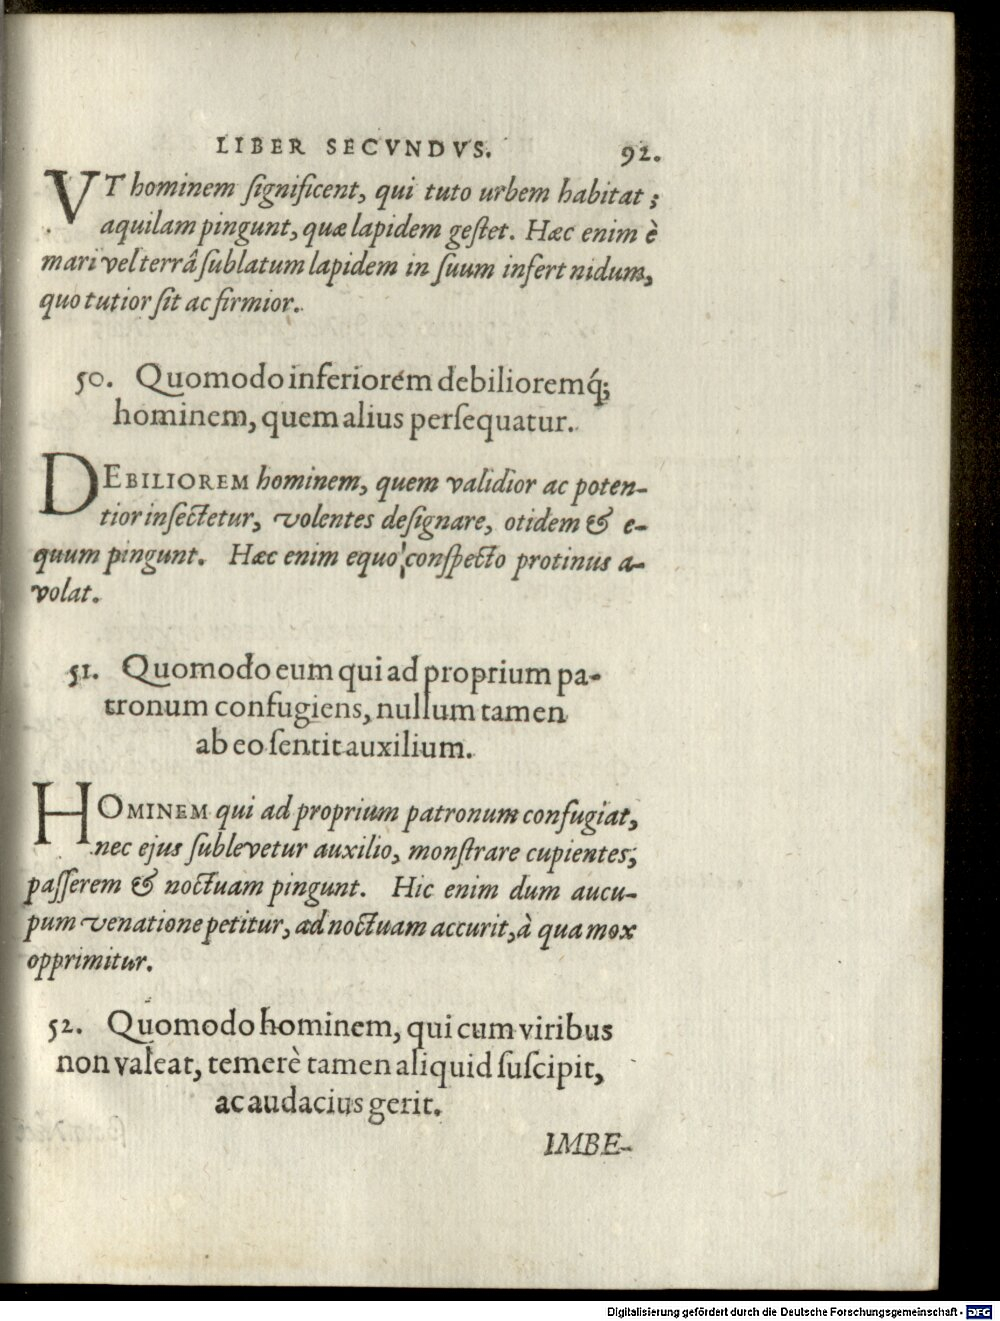 LIBER SECVNDVS. 92.
VT hominem ſignificent, qui tuto urbem habitat;
aquilam pingunt, quæ lapidem geſtet. Hæc enim è
mari vel terrâ ſublatum lapidem in ſuum infert nidum,
quo tutior ſit ac firmior.
50. Quomodo inferiorem debilioremq́;
hominem, quem alius perſequatur.
DEBILIOREM hominem, quem validior ac poten-
tior inſectetur, volentes deſignare, otidem & e-
quum pingunt. Hæc enim equo conſpecto protinus a-
volat.
51. Quomodo eum qui ad proprium pa-
tronum confugiens, nullum tamen
ab eo ſentit auxilium.
HOMINEM qui ad proprium patronum confugiat,
nec ejus ſublevetur auxilio, monſtrare cupientes,
paſſerem & noctuam pingunt. Hic enim dum aucu-
pum venatione petitur, ad noctuam accurit, à qua mox
opprimitur.
52. Quomodo hominem, qui cum viribus
non valeat, temerè tamen aliquid ſuſcipit,
ac audacius gerit.
IMBE-
Digitalisierung gefördert durch die Deutsche Forschungsgemeinschaft - DFG